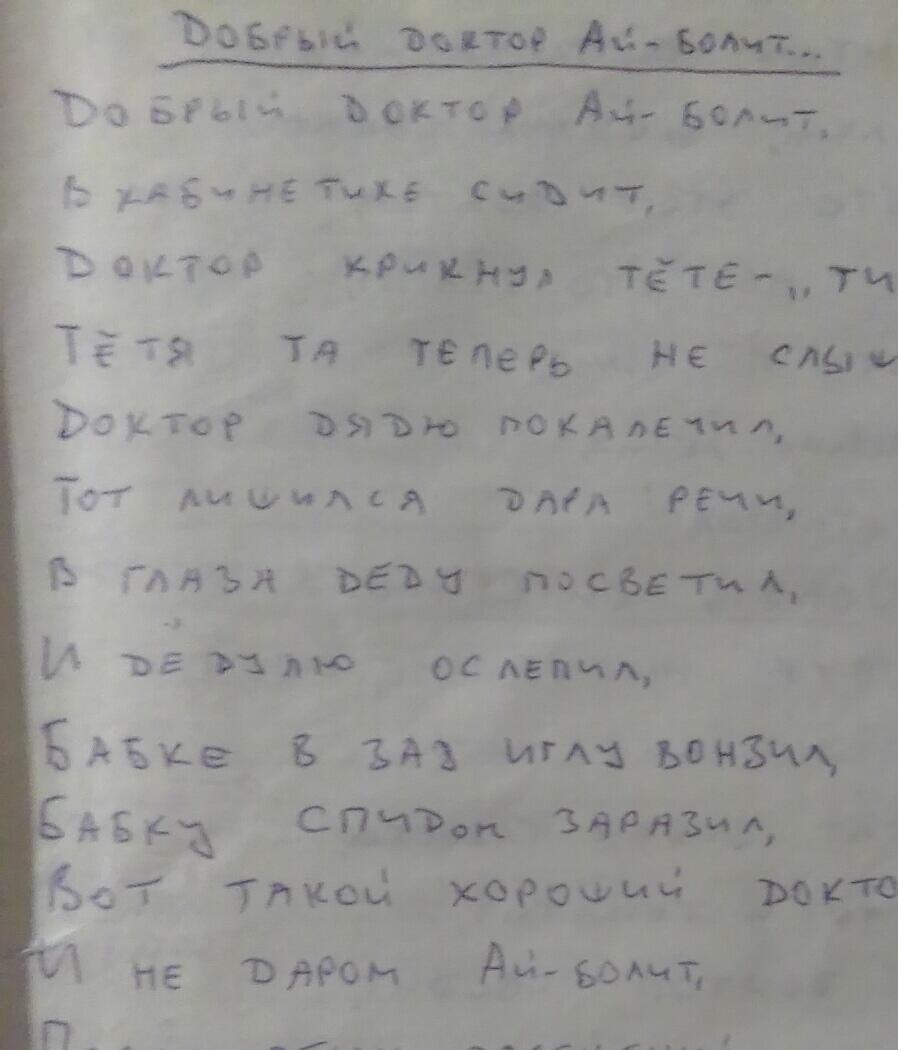 Добрый доктор Ай-болит...
Добрый доктор Ай-болит,
В кабинетике сидит,
Доктор крикнул тёте-„ти
Тётя та теперь не слыш
Доктор дядю покалечил,
Тот лишился дара речи,
В глаза деду посветил,
И дедулю ослепил,
Бабке в зад иглу вонзил,
Бабку спидом заразил,
Вот такой хороший докто
И не даром Ай-болит,